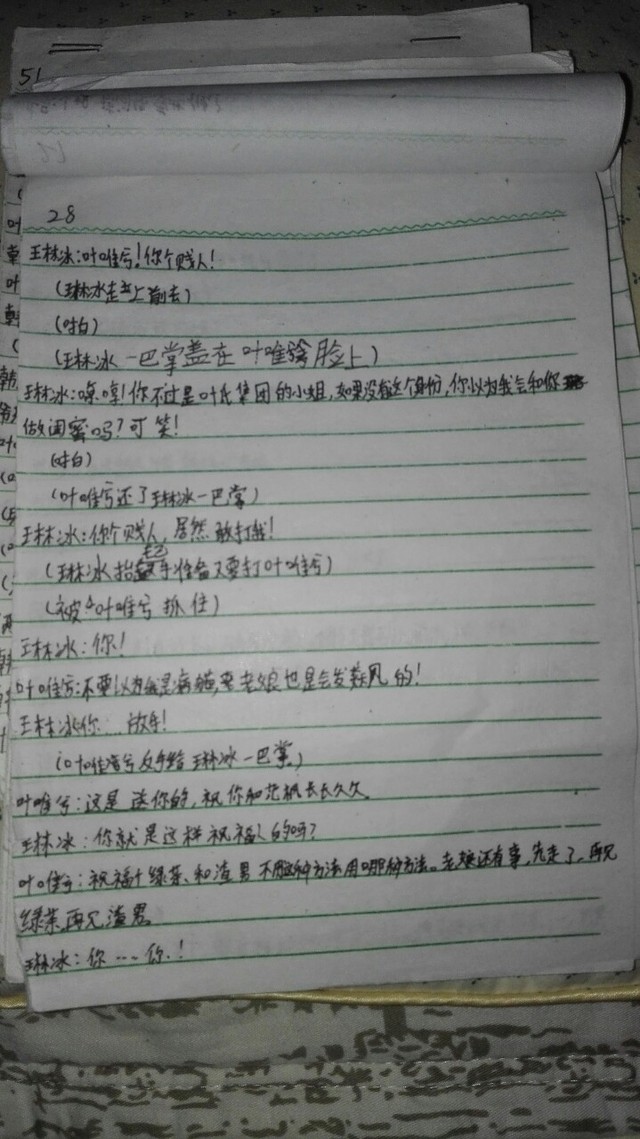 51
28
王林冰:叶唯兮!你个贱人!
(王林冰走上前去)
(对白)
(王林冰一巴掌盖在叶唯兮脸上)
王林冰:哼,哼!你不过是叶氏集团的小姐,如果没有这个身份,你以为我会和你
做闺蜜吗?可笑!
(对白)
(叶唯兮还了王林冰一巴掌)
王林冰:你个贱人,居然敢打我!
(王林冰抬起手准备又要打叶唯兮)
(被叶唯兮抓住)
王林冰:你!
叶唯兮:不要以为我是病猫,老娘也是会发疯的!
王林冰:你...放手!
(叶唯兮反手给王林冰一巴掌)
叶唯兮:这是送你的,祝你和范帆长长久久
王林冰:你就是这样祝福人的吗?
叶唯兮:祝福个绿茶、和渣男不用这种方法用哪种方法。老娘还有事,先走了,再见
绿茶,再见渣男
王林冰:你...你!